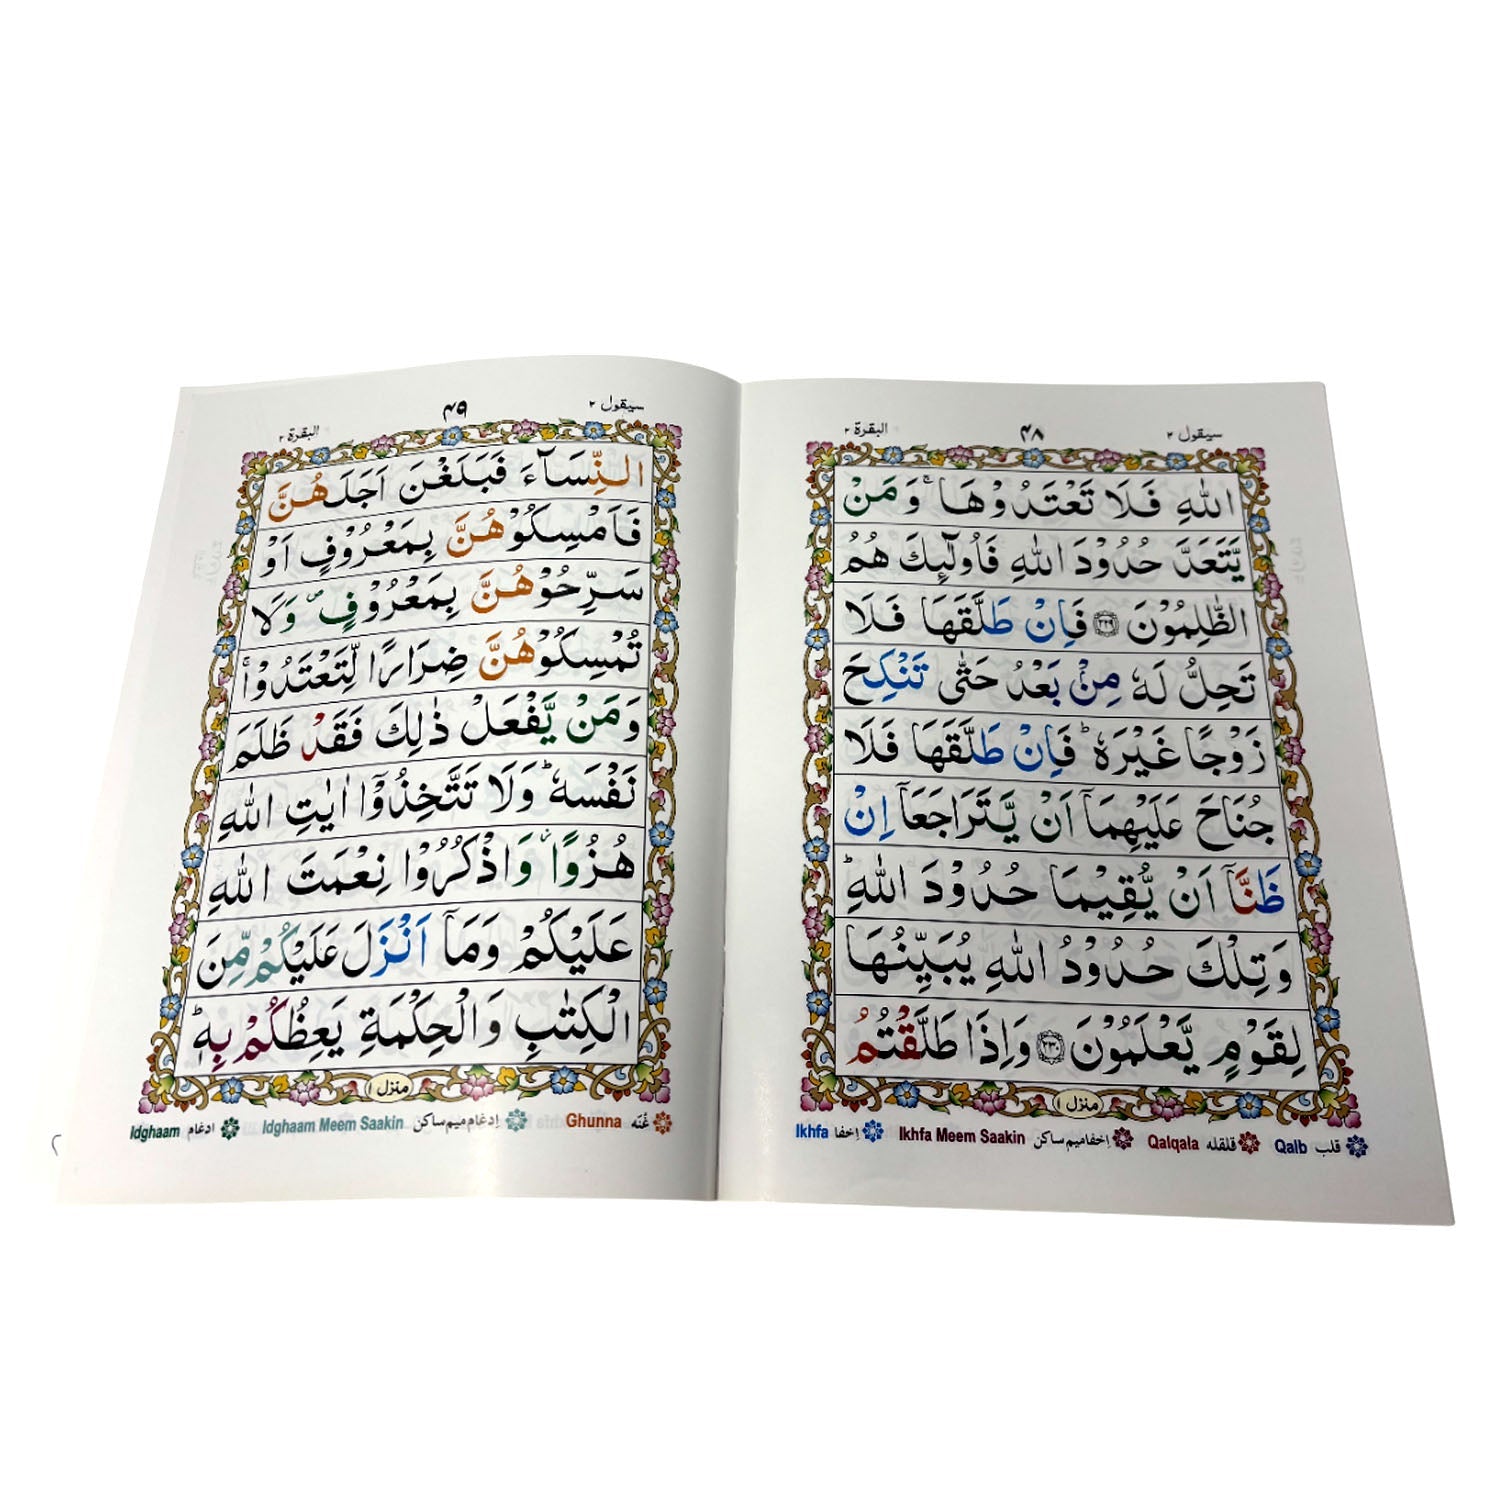 سيقول ٢
٤٨
البقرة ٢
اللّٰهِ فَلَا تَعْتَدُوْهَا ۚ وَمَنْ
يَّتَعَدَّ حُدُوْدَ اللّٰهِ فَاُولٰٓئِكَ هُمُ
الظّٰلِمُوْنَ ﴿٢٢٩﴾ فَاِنْ طَلَّقَهَا فَلَا
تَحِلُّ لَهٗ مِنْۢ بَعْدُ حَتّٰى تَنْكِحَ
زَوْجًا غَيْرَهٗ ؕ فَاِنْ طَلَّقَهَا فَلَا
جُنَاحَ عَلَيْهِمَاۤ اَنْ يَّتَرَاجَعَاۤ اِنْ
ظَنَّاۤ اَنْ يُّقِيْمَا حُدُوْدَ اللّٰهِ ؕ
وَتِلْكَ حُدُوْدُ اللّٰهِ يُبَيِّنُهَا
لِقَوْمٍ يَّعْلَمُوْنَ ﴿٢٣٠﴾ وَاِذَا طَلَّقْتُمُ
منزل ١
قلب Qalb قلقله Qalqala اِخفا میم ساکن Ikhfa Meem Saakin اِخفا Ikhfa
سيقول ٢
٤٩
البقرة ٢
النِّسَآءَ فَبَلَغْنَ اَجَلَهُنَّ
فَاَمْسِكُوْهُنَّ بِمَعْرُوْفٍ اَوْ
سَرِّحُوْهُنَّ بِمَعْرُوْفٍ ۪ وَلَا
تُمْسِكُوْهُنَّ ضِرَارًا لِّتَعْتَدُوْا ۚ
وَمَنْ يَّفْعَلْ ذٰلِكَ فَقَدْ ظَلَمَ
نَفْسَهٗ ؕ وَلَا تَتَّخِذُوْۤا اٰيٰتِ اللّٰهِ
هُزُوًا ۡ وَاذْكُرُوْا نِعْمَتَ اللّٰهِ
عَلَيْكُمْ وَمَاۤ اَنْزَلَ عَلَيْكُمْ مِّنَ
الْكِتٰبِ وَالْحِكْمَةِ يَعِظُكُمْ بِهٖ ؕ
منزل ١
غُنّه Ghunna اِدغام میم ساکن Idghaam Meem Saakin ادغام Idghaam